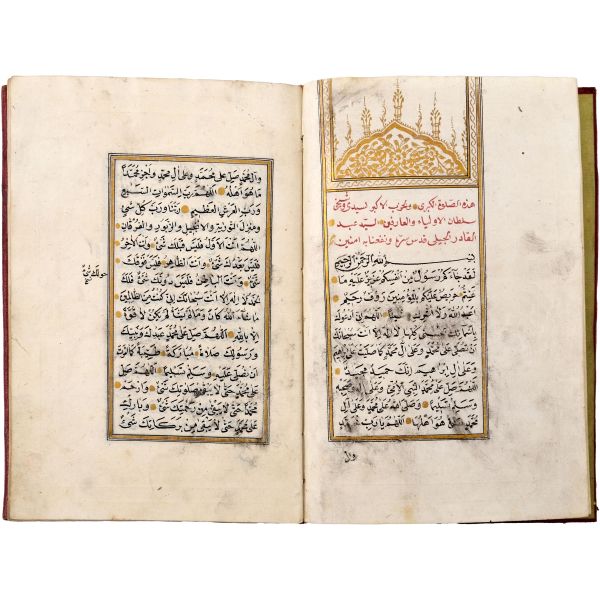 هذه الصلوة الكبرى والحزب الاكبر لسيدى
سلطان الاولياء والعارفين السيد عبد
القادر الجيلى قدس سره ونفعنا به امين
بسم الله الرحمن الرحيم
لقد جاءكم رسول من انفسكم عزيز عليه ما
عنتم حريص عليكم بالمؤمنين رؤف رحيم
اعبد الله ولا اشرك به شيئا اللهم انى ادعوك
باسمائك الحسنى كلها لا اله الا انت سبحانك
ان تصلى على محمد وعلى آل محمد كما صليت على
وعلى آل ابراهيم انك حميد مجيد
اللهم صل على محمد النبى الامى وعلى آله وصحبه
وسلم تسليما وصلى الله على محمد وعلى آل
محمد صلوة هو اهلها اللهم يا رب
وآل
وآل محمد صل على محمد وعلى آل محمد واجز محمدا
ما هو اهله اللهم رب السموات السبع
ورب العرش العظيم ربنا ورب كل شئ
ومنزل التورية والانجيل والزبور والفرقان
اللهم انت الاول فليس قبلك شئ وانت
فليس بعدك شئ وانت الظاهر فليس فوقك
شئ وانت الباطن فليس دونك شئ
لا اله الا انت سبحانك انى كنت من الظالمين
ما شاء الله كان وما لم يشأ لم يكن لا قوة
الا بالله اللهم صل على محمد عبدك ونبيك
ورسولك صلاة مباركة طيبة كما امرت
ان نصلى عليه وسلم تسليما اللهم صل
على محمد حتى لا يبقى من صلوتك شئ وارحم
محمدا حتى لا يبقى من رحمتك شئ وبارك
على محمد حتى لا يبقى من بركاتك شئ